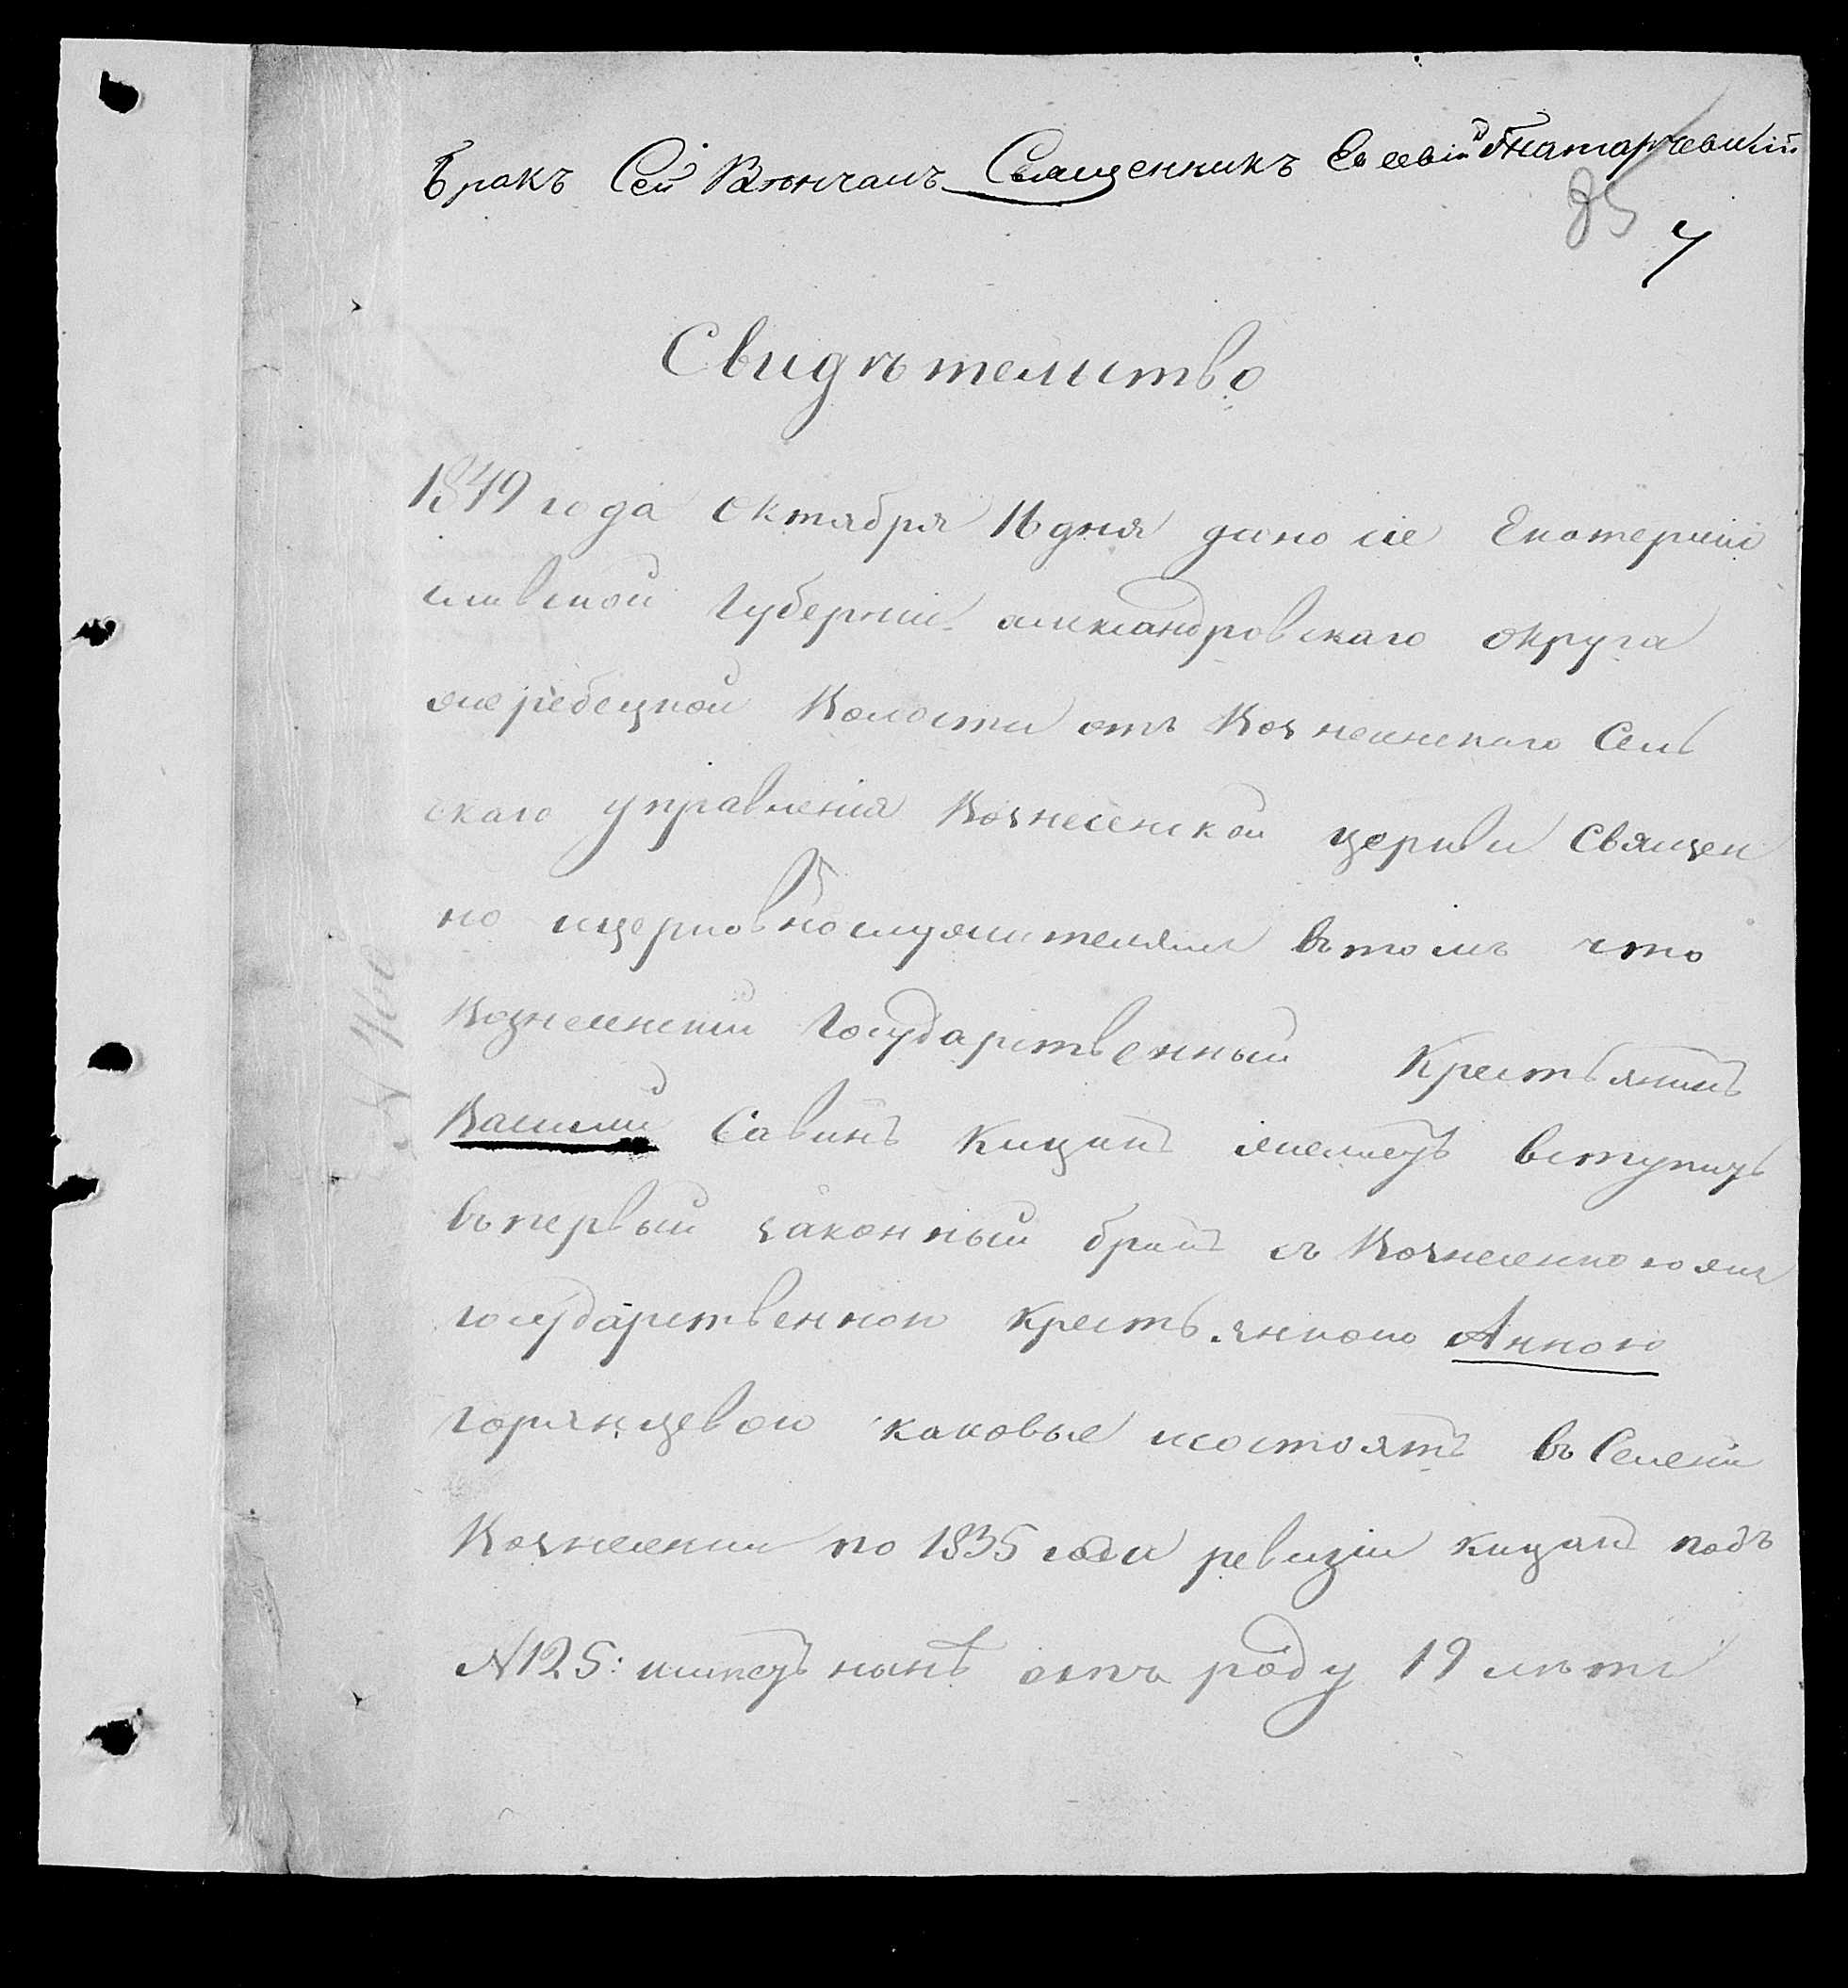 Бракъ Сей Вѣнчалъ Священникъ Евсевій Татарчевскій
85
4
Свидѣтельство
1849 года Октября 16 дня дано сіе Екатерино
славской Губерніи александровскаго округа
жеребецкой Волости отъ Вознесенскаго Сель
скаго управленія Вознесенской церкви Священ
но ицерковнослужителямъ втомъ что
Вознесенскій Государственный Крестьянинъ
Василий Савинъ Кицанъ желаетъ вступить
въпервый законный бракъ съ Вознесенскоюже
государственною крестьянкою Анною
горянцевою каковые исостоятъ въ Селеніи
Вознесенки по 1835 года ревизіи кицанъ подъ
№125: имѣетъ нынѣ отъ роду 19 лѣтъ